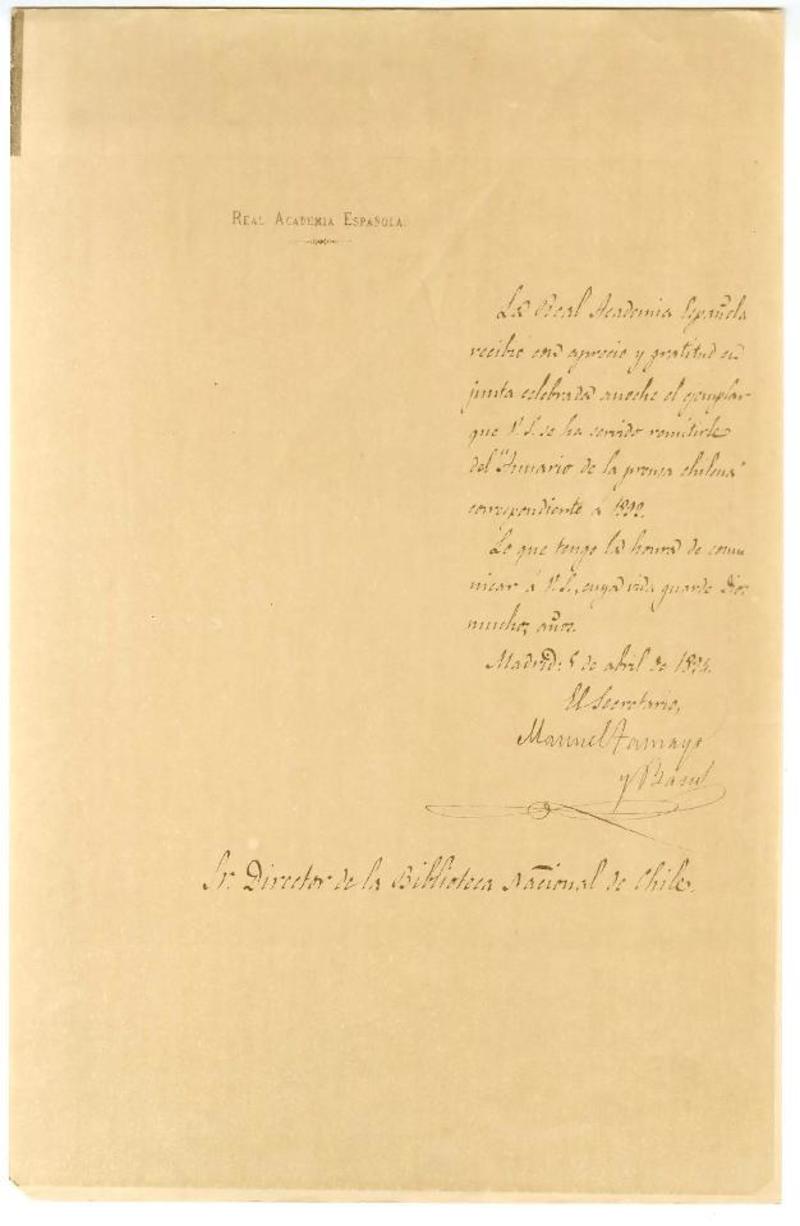 REAL ACADEMIA ESPAÑOLA.
La Real Academia Española
recibió con aprecio y gratitud en
junta celebrada anoche el ejemplar
que V.S. se ha servido remitirle
del "Anuario de la prensa chilena"
correspondiente á
Lo que tengo la honra de comu
nicar á V.S., cuya vida guarde Dios
muchos años.
Madrid: de abril de
El Secretario,
Manuel Tamayo
y Baus
Sr. Director de la Biblioteca Nacional de Chile.